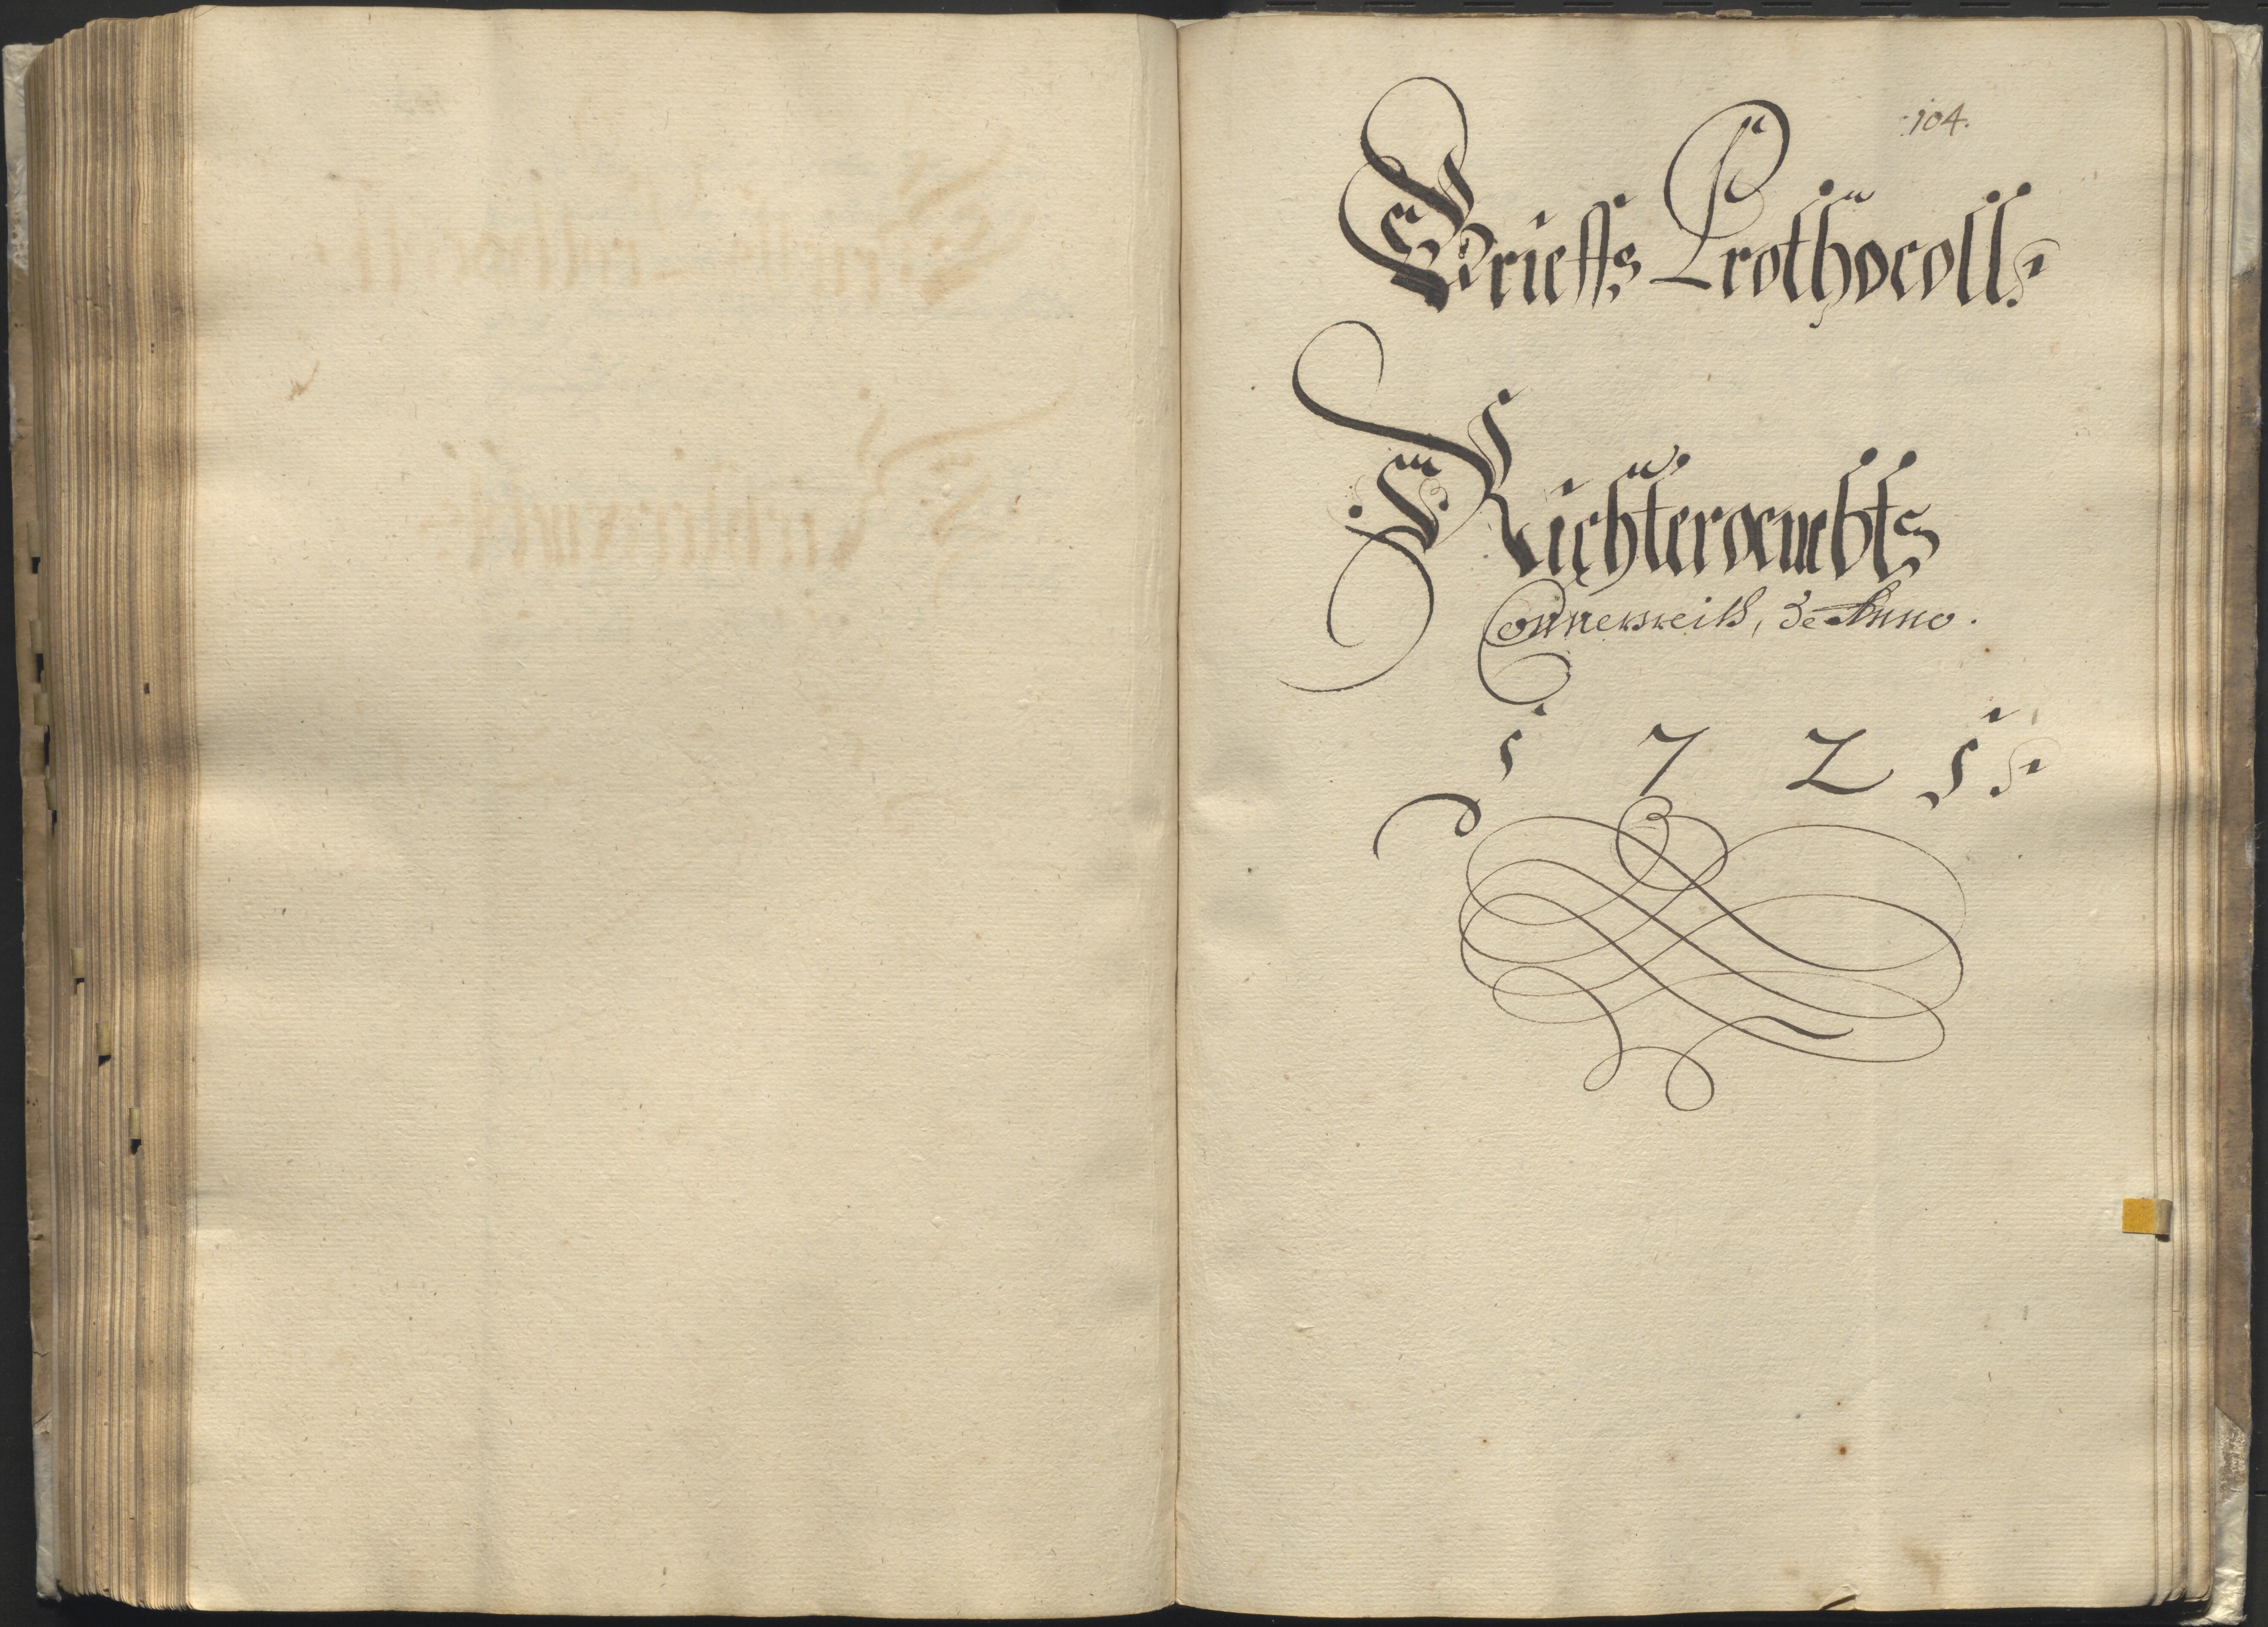 104.
Brieffs Prothocoll
Richterambts
Connersreith, de Anno.
1721